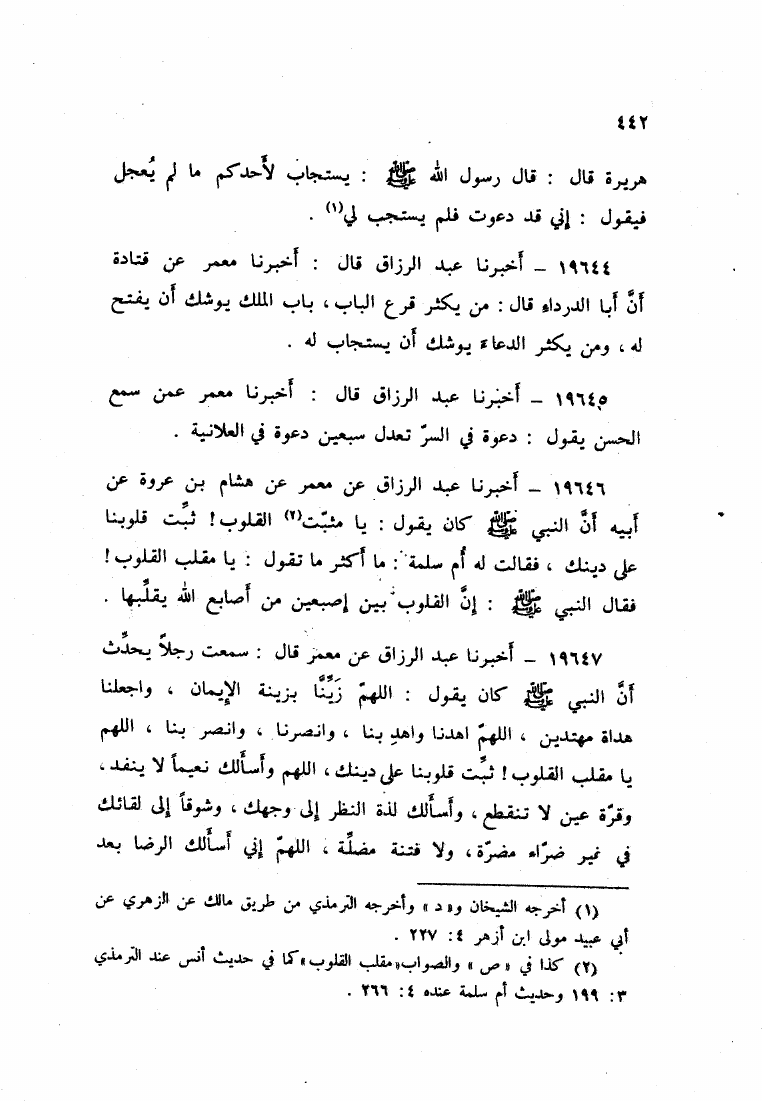 ٤٤٢
هريرة قال : قال رسول الله ﷺ : يستجاب لأَحدكم ما لم يُعجل
فيقول : إني قد دعوت فلم يستجب لي(١) .
١٩٦٤٤ – أَخبرنا عبد الرزاق قال : أَخبرنا معمر عن قتادة
أَنَّ أَبا الدرداء قال : من يكثر قرع الباب ، باب الملك يوشك أَن يفتح
له ، ومن يكثر الدعاء يوشك أَن يستجاب له .
١٩٦٤٥ – أَخبرنا عبد الرزاق قال : أَخبرنا معمر عمن سمع
الحسن يقول : دعوة في السرّ تعدل سبعين دعوة في العلانية .
١٩٦٤٦ – أَخبرنا عبد الرزاق عن معمر عن هشام بن عروة عن
أَبيه أَنَّ النبي ﷺ كان يقول : يا مثبّت(٢) القلوب ! ثبِّت قلوبنا
على دينك ، فقالت له أُم سلمة : ما أَكثر ما تقول : يا مقلب القلوب !
فقال النبي ﷺ : إِنَّ القلوب بين إِصبعين من أَصابع الله يقلِّبها .
١٩٦٤٧ – أَخبرنا عبد الرزاق عن معمر قال : سمعت رجلاً يحدِّث
أَنَّ النبي ﷺ كان يقول : اللهمّ زَيِّنَّا بزينة الإِيمان ، واجعلنا
هداة مهتدين ، اللهمّ اهدنا واهدِ بنا ، وانصرنا ، وانصر بنا ، اللهم
يا مقلب القلوب ! ثبِّت قلوبنا على دينك ، اللهم وأَسأَلك نعيماً لا ينفد ،
وقرّة عين لا تنقطع ، وأَسأَلك لذة النظر إِلى وجهك ، وشوقاً إِلى لقائك
في غير ضرّاء مضرّة ، ولا فتنة مضلِّة ، اللهمّ إِني أَسأَلك الرضا بعد
(١) أخرجه الشيخان و«د» وأخرجه الترمذي من طريق مالك عن الزهري عن
أبي عبيد مولى ابن أزهر ٤ : ٢٢٧ .
(٢) كذا في «ص» والصواب«مقلب القلوب»كما في حديث أنس عند الترمذي
٣ : ١٩٩ وحديث أم سلمة عنده ٤ : ٢٦٦ .